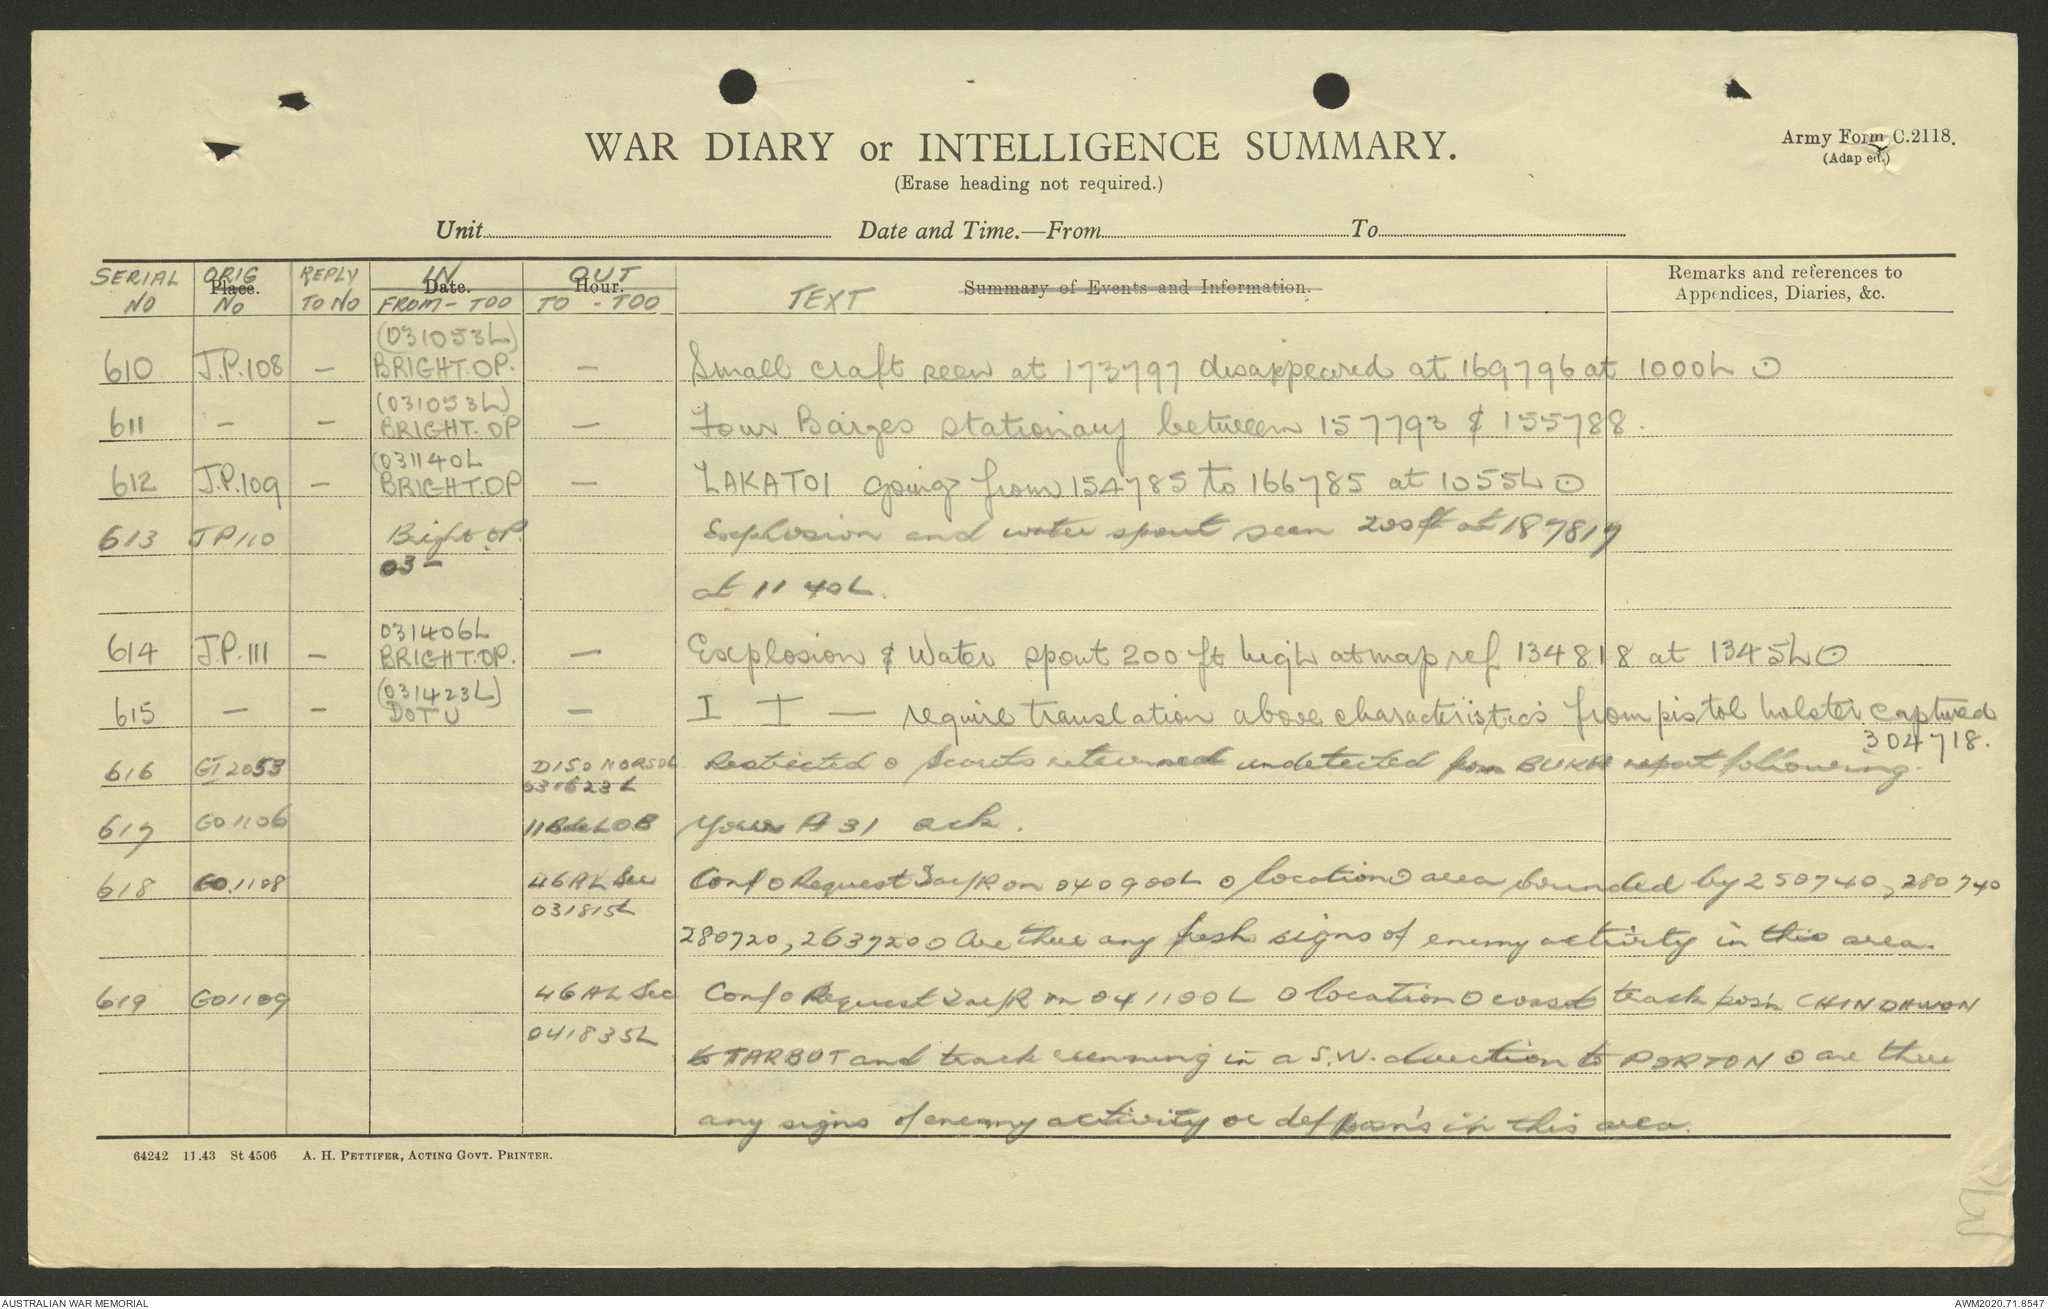 WAR DIARY or INTELLIGENCE SUMMARY.
Army Form C.2118.
(Adap ed.)
(Erase heading not required.)
Unit Date and Time.—From To
SERIAL NO ORIG Place. No REPLY TO NO IN Date. FROM - TOO OUT Hour. TO - TOO TEXT Summary of Events and Information. Remarks and references to Appendices, Diaries, &c.
(031053L)
610 J.P.108 — BRIGHT.OP. — Small craft seen at 173797 disappeared at 169796 at 1000L ⊙
(031053L)
611 — — BRIGHT.OP — Four Barges stationary between 157793 & 155788.
(031140L
612 J.P.109 — BRIGHT.OP — LAKATOI going from 154785 to 166785 at 1055L ⊙
613 JP110 Bright OP. Explosion and water spout seen 200ft at 187817
03 — at 1140L.
031406L
614 J.P.111 — BRIGHT.OP. — Explosion & Water spout 200 ft high at map ref 134818 at 1345L ⊙
(031423L)
615 — — DOTU — I — require translation above characteristics from pistol holster captured
304718.
616 GI2053 DISO NORSOL Restricted o Scouts returned undetected from BUKA report following.
031623L
617 GO1106 11BdeLOB Your A 31 ack.
618 GO.1108 46AL Sec Conf o Request Tac/R on 040900L o location o area bounded by 250740, 280740
031815L
280720, 263720 o Are there any fresh signs of enemy activity in this area.
619 GO1109 46AL Sec Conf o Request Tac/R on 041100L o location o coast track posn CHINDHWON
041835L
to TARBOT and track running in a S.W. direction to PORTON o are there
any signs of enemy activity or def posn's in this area.
64242 11.43 St 4506 A. H. PETTIFER, ACTING GOVT. PRINTER.
AUSTRALIAN WAR MEMORIAL
AWM2020.71.8547